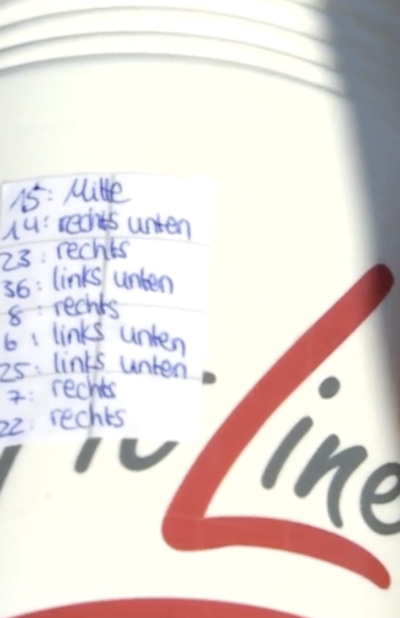 15: Mitte
14: rechts unten
23: rechts
36: links unten
8: rechts
6: links unten
25: links unten
7: rechts
22: rechts
Line